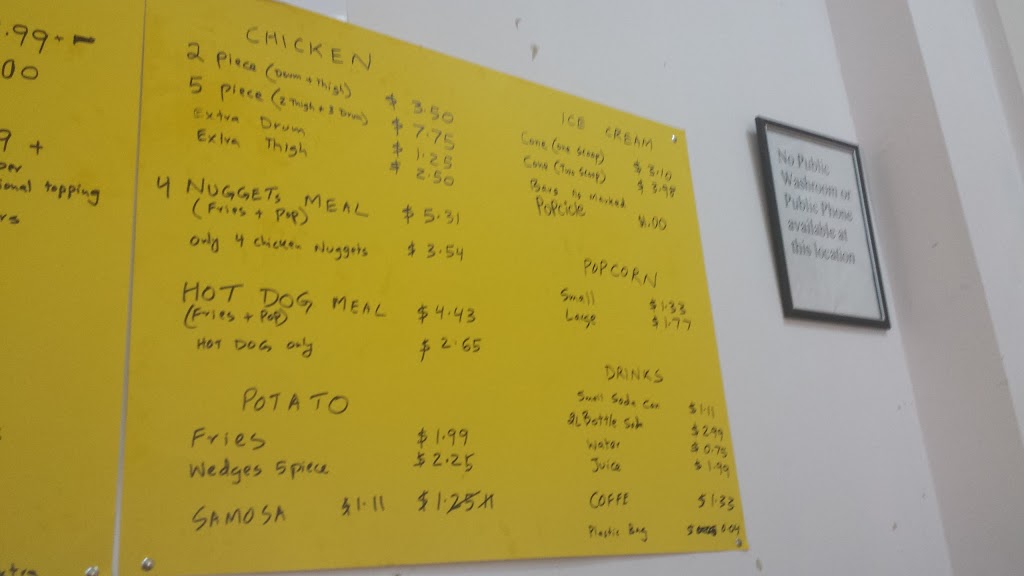 .99
00
9 +
onal topping
rs
CHICKEN
2 piece (Drum + Thigh) $ 3.50
5 piece (2 Thigh + 3 Drum) $ 7.75
Extra Drum $ 1.25
Extra Thigh $ 2.50
4 NUGGETS MEAL $ 5.31
(Fries + Pop)
only 4 chicken Nuggets $ 3.54
HOT DOG MEAL $ 4.43
(Fries + Pop)
HOT DOG only $ 2.65
POTATO
Fries $ 1.99
Wedges 5 piece $ 2.25
SAMOSA $1.11 $1.25
ICE CREAM
Cone (one scoop) $ 3.10
Cone (Two scoop) $ 3.98
Bars as marked
Popcicle $1.00
POPCORN
Small $1.33
Large $1.77
DRINKS
Small Soda Can $1.11
2L Bottle Soda $2.99
Water $0.75
Juice $1.99
COFFE $1.33
Plastic Bag 0.04
No Public
Washroom or
Public Phone
available at
this location